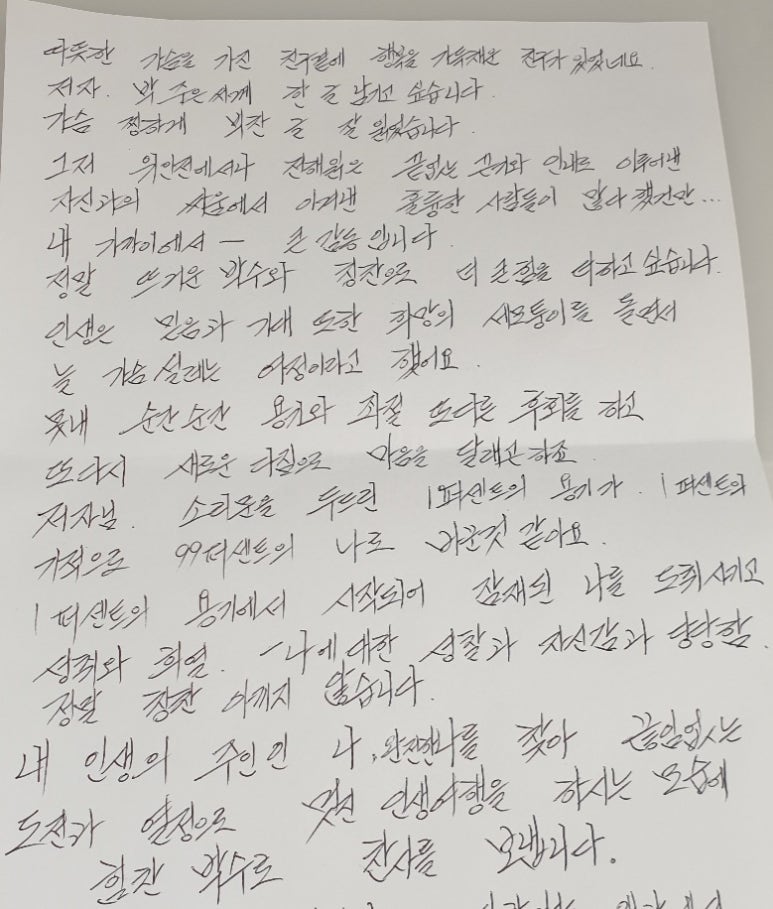 따뜻한 가슴을 가진 친구곁에 행복을 가득채운 친구가 있었네요.
저자. 박 주은씨께 한 글 남기고 싶습니다.
가슴 찡하게 벅찬 글 잘 읽었습니다.
그저 위인전에서나 전해읽은 끝없는 끈기와 인내로 이루어낸
자신과의 싸움에서 이겨낸 훌륭한 사람들이 많다 했건만...
내 가까이에서 — 큰 감동입니다.
정말 뜨거운 박수와 칭찬으로 더 큰 힘을 더하고 싶습니다.
인생은 믿음과 기대 또한 희망의 세모퉁이를 돌면서
늘 가슴 설레는 여정이라고 했어요.
못내 순간순간 용기와 좌절 또다른 후회를 하고
또다시 새로운 다짐으로 마음을 달래곤 하죠.
저자님. 소리문을 두드린 1퍼센트의 용기가. 1퍼센트의
기적으로 99퍼센트의 나로 바꾼것 같아요.
1퍼센트의 용기에서 시작되어 잠재된 나를 도취시키고
성취와 희열. — 나에 대한 성찰과 자신감과 당당함.
정말 칭찬 아끼지 않습니다.
내 인생의 주인인 나, 완전한나를 찾아 끊임없는
도전과 열정으로 멋진 인생여행을 하시는 모습에
힘찬 박수로 찬사를 보냅니다.